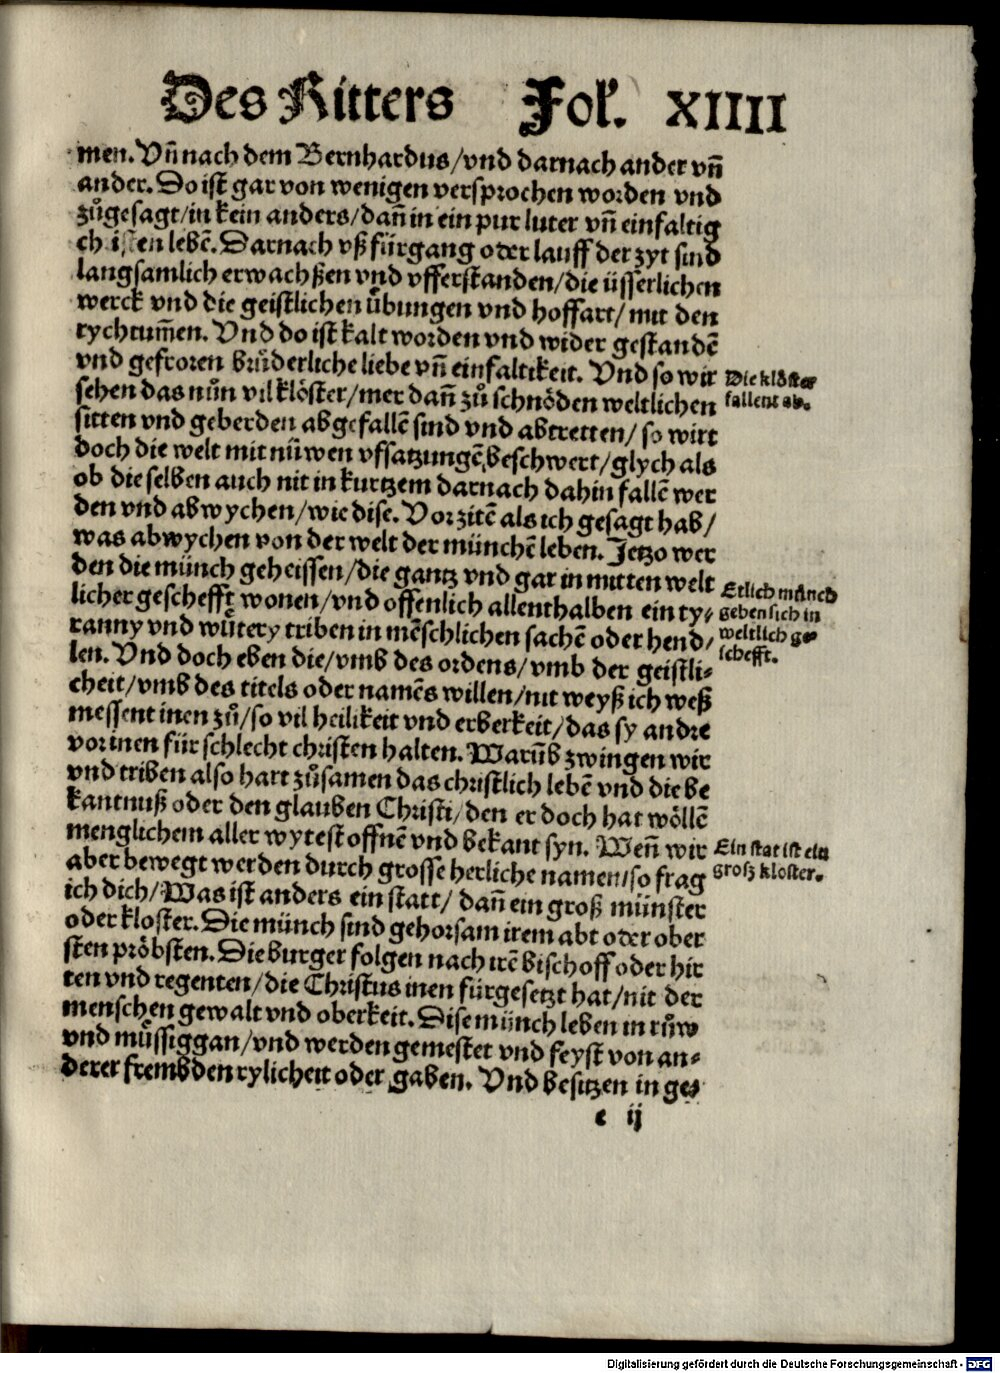 Des Ritters Fol. XIIII
men. Vñ nach dem Bernhardus/vnd darnach ander vñ
ander. Do ist gar von wenigen versprochen worden vnd
zůgesagt/in kein anders/dañ in ein pur luter vñ einfaltig
ch isten lebē. Darnach vß fürgang oder lauff der zyt sind
langsamlich erwachßen vnd vfferstanden/die üsserlichen
werck vnd die geistlichen übungen vnd hoffart/mit den
rychtum̄en. Vnd do ist kalt worden vnd wider gestandē
vnd gefroren brůderliche liebe vñ einfaltikeit. Vnd so wir
sehen das nůn vil klöster/mer dañ zů schnöden weltlichen
sitten vnd geberden abgefallē sind vnd abtretten/so wirt
doch die welt mit nüwen vfsatzungē beschwert/glych als
ob die selben auch nit in kurtzem darnach dahin fallē wer
den vnd abwychen/wie dise. Vor zitē als ich gesagt hab/
was abwychen von der welt der münchē leben. Jetzo wer
den die münch geheissen/die gantz vnd gar in mitten welt
licher geschefft wonen/vnd offenlich allenthalben ein ty-
ranny vnd wůtery triben in mēschlichen sachē oder hend/
len. Vnd doch eben die/vmb des ordens/vmb der geistli-
cheit/vmb des titels oder namēs willen/nit weyß ich weß
messent inen zů/so vil heilikeit vnd erberkeit/das sy andre
vor inen für schlecht christen halten. Warūb zwingen wir
vnd triben also hart zůsamen das christlich lebē vnd die be
kantnuß oder den glauben Christi/den er doch hat wöllē
menglichem aller wytest offnē vnd bekant syn. Weñ wir
aber bewegt werden durch grosse herliche namen/so frag
ich dich/Was ist anders ein statt/dañ ein groß münster
oder kloster. Die münch sind gehorsam irem abt oder ober
sten pröbsten. Die burger folgen nach irē bischoff oder hir
ten vnd regenten/die Christus inen fürgesetzt hat/nit der
menschen gewalt vnd oberkeit. Dise münch leben in růw
vnd můssiggan/vnd werden gemestet vnd feyst von an-
derer frembden rylicheit oder gaben. Vnd besitzen in ge-
c ij
Die klöster
fallent ab.
Etlich münch
geben sich in
weltlich ge-
schefft.
Ein stat ist ein
groß kloster.
Digitalisierung gefördert durch die Deutsche Forschungsgemeinschaft - DFG